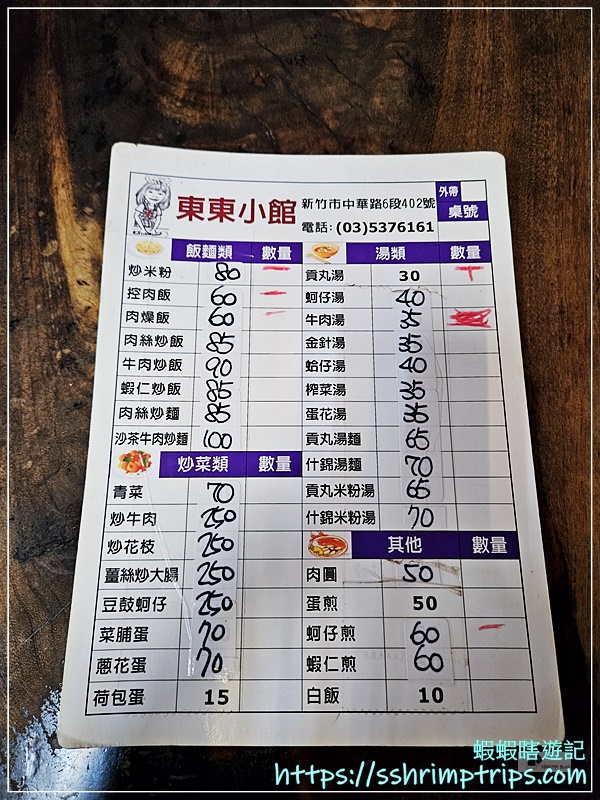 東東小館
新竹市中華路6段402號
電話:(03)5376161
外帶
桌號
飯麵類 數量
炒米粉 80
控肉飯 60
肉燥飯 60
肉絲炒飯 85
牛肉炒飯 90
蝦仁炒飯 85
肉絲炒麵 85
沙茶牛肉炒麵 100
炒菜類 數量
青菜 70
炒牛肉 250
炒花枝 250
薑絲炒大腸 250
豆鼓蚵仔 250
菜脯蛋 70
蔥花蛋 70
荷包蛋 15
湯類 數量
貢丸湯 30
蚵仔湯 40
牛肉湯 35
金針湯 35
蛤仔湯 40
榨菜湯 35
蛋花湯 35
貢丸湯麵 65
什錦湯麵 70
貢丸米粉湯 65
什錦米粉湯 70
其他 數量
肉圓 50
蛋煎 50
蚵仔煎 60
蝦仁煎 60
白飯 10
蝦蝦瞎遊記
https://sshrimptrips.com